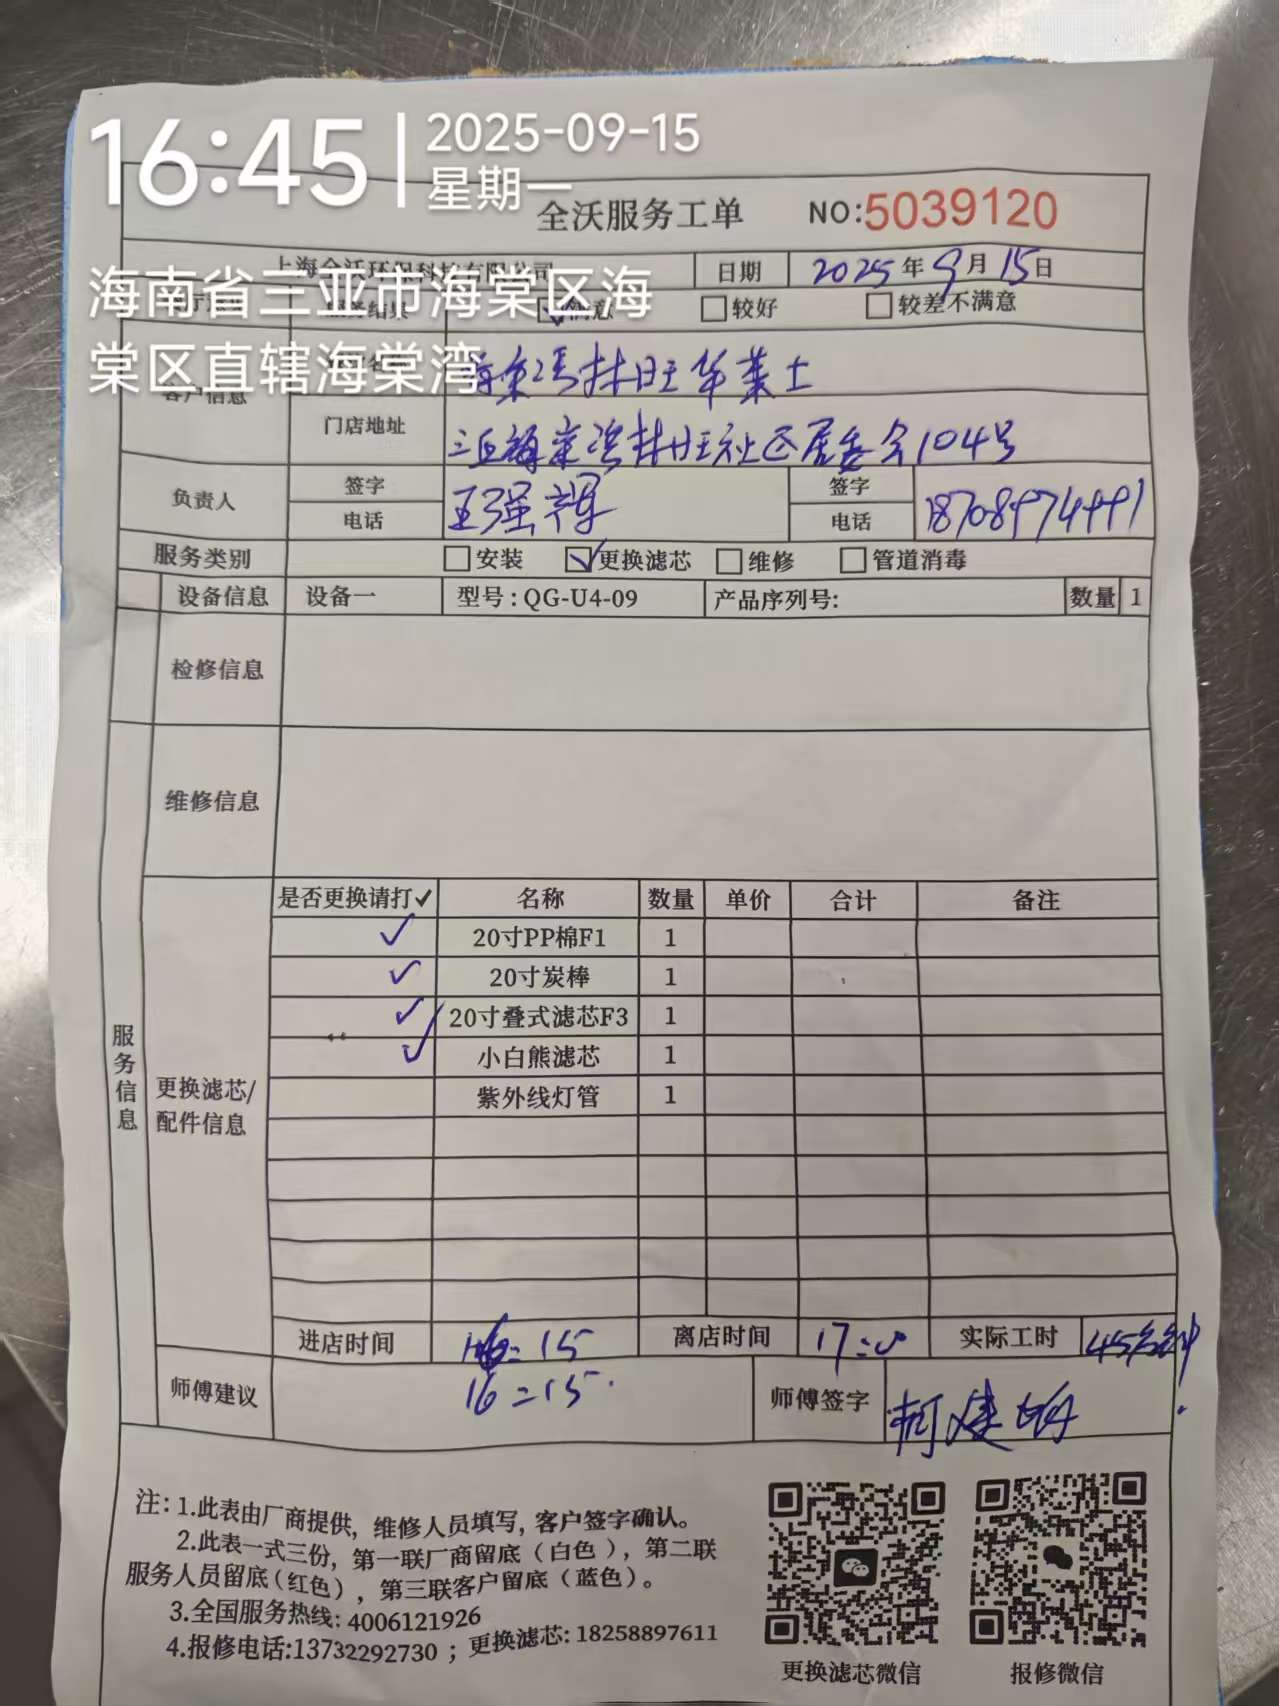 16:45
2025-09-15
星期一
海南省三亚市海棠区海
棠区直辖海棠湾
全沃服务工单 NO:5039120
上海全沃环保科技有限公司 日期 2025年9月15日
服务结果 ☑满意 ☐较好 ☐较差不满意
客户信息
海棠湾林旺华莱士
门店地址 三亚海棠湾林旺社区居委会104号
负责人 签字 王强 签字
电话 电话
服务类别 ☐安装 ☑更换滤芯 ☐维修 ☐管道消毒
设备信息 设备一 型号:QG-U4-09 产品序列号: 数量 1
检修信息
维修信息
服务信息
更换滤芯/配件信息
是否更换请打✓ 名称 数量 单价 合计 备注
✓ 20寸PP棉F1 1
✓ 20寸炭棒 1
✓ 20寸叠式滤芯F3 1
✓ 小白熊滤芯 1
紫外线灯管 1
进店时间 16:15 离店时间 17:00 实际工时 45分钟
师傅建议 16:15 师傅签字 柯建
注:1.此表由厂商提供,维修人员填写,客户签字确认。
2.此表一式三份,第一联厂商留底(白色),第二联
服务人员留底(红色),第三联客户留底(蓝色)。
3.全国服务热线:4006121926
4.报修电话:13732292730 ;更换滤芯:18258897611
更换滤芯微信 报修微信